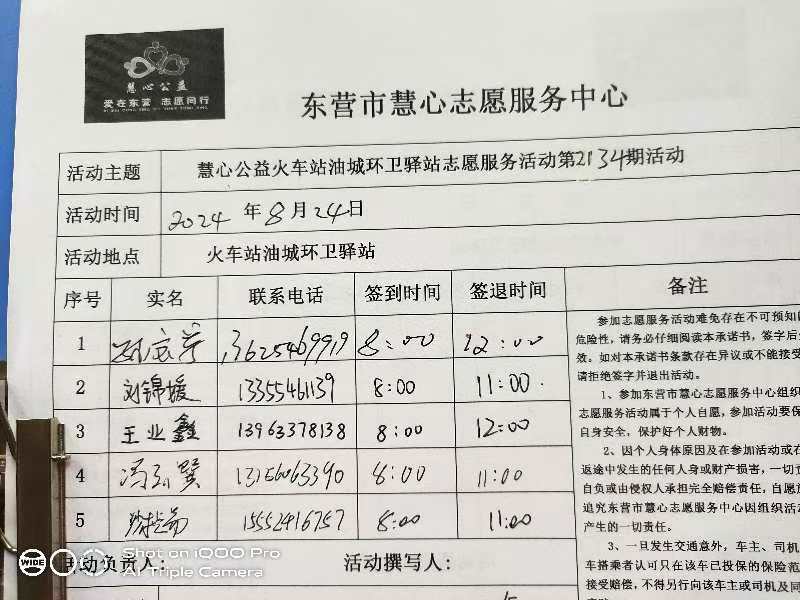 慧心公益
爱在东营 志愿同行
东营市慧心志愿服务中心
活动主题 慧心公益火车站油城环卫驿站志愿服务活动第2134期活动
活动时间 2024年8月24日
活动地点 火车站油城环卫驿站
序号 实名 联系电话 签到时间 签退时间 备注
1 13625469919 8:00 12:00
2 刘锦媛 13355461139 8:00 11:00
3 王业鑫 13963378138 8:00 12:00
4 8:00 11:00
5 15552416757 8:00 11:00
参加志愿服务活动难免存在不可预知
危险性，请务必仔细阅读本承诺书，签字后
效。如对本承诺书条款存在异议或不能接受
请拒绝签字并退出活动。
1、参加东营市慧心志愿服务中心组织
志愿服务活动属于个人自愿，参加活动要保
自身安全，保护好个人财物。
2、因个人身体原因及在参加活动或在
返途中发生的任何人身或财产损害，一切责
自负或由侵权人承担完全赔偿责任，自愿放
追究东营市慧心志愿服务中心因组织活动
产生的一切责任。
3、一旦发生交通意外，车主、司机
车搭乘者认可只在该车已投保的保险范
接受赔偿，不得另行向该车主或司机及同
活动负责人： 活动撰写人：
WIDE
Shot on iQOO Pro
AI Triple Camera